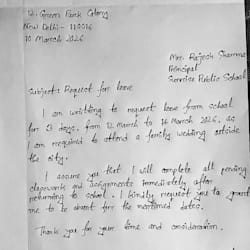 12, Green Park Colony
New Delhi - 110016
10 March 2026
Mrs. Rajesh Sharma
Principal
Sunrise Public School
Subject: Request for leave
I am writing to request leave from school
for 3 days, from 12 March to 14 March 2026, as
I am required to attend a family wedding outside
the city.
I assure you that I will complete all pending
classwork and assignments immediately after
returning to school. I kindly request you to grant
me to be absent for the mentioned dates.
Thank you for your time and consideration.